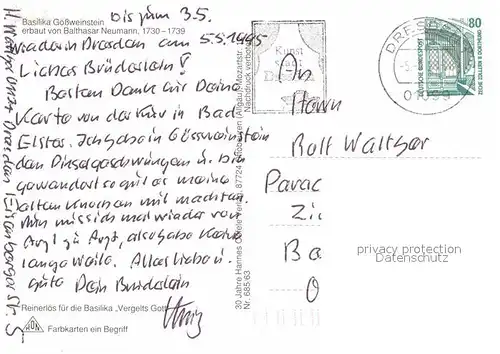 Basilika Gößweinstein
erbaut von Balthasar Neumann, 1730–1739
bis zum 3.5.
wieder in Dresden am 5.5.1995
Liebes Brüderlein!
Besten Dank für Deine
Karte von der Kur in Bad
Elster. Ich habe in Gössweinstein
den Pinsel geschwungen u. bin
gewandert so gut es meine
alten Knochen mit machten.
Nun muss ich mal wieder von
Arzt zu Arzt, also habe keine
lange Weile. Alles liebe u.
gute Dein Brüderlein
Heinz
Reinerlös für die Basilika „Vergelts Gott“
Farbkarten ein Begriff
H. Walther Dresden Eisenberger Str. 5
Nr. 685/63
30 Jahre Hannes Oefele Verlag, 87724 Ottobeuren (Allgäu), Mozartstr.
Nachdruck verboten
Kunst
stadt
DRESD
01099
80
DEUTSCHE BUNDESPOST
ZECHE ZOLLERN II DORTMUND
An
Herrn
Rolf Walther
Parac
Zi
Ba
O
privacy protection
Datenschutz